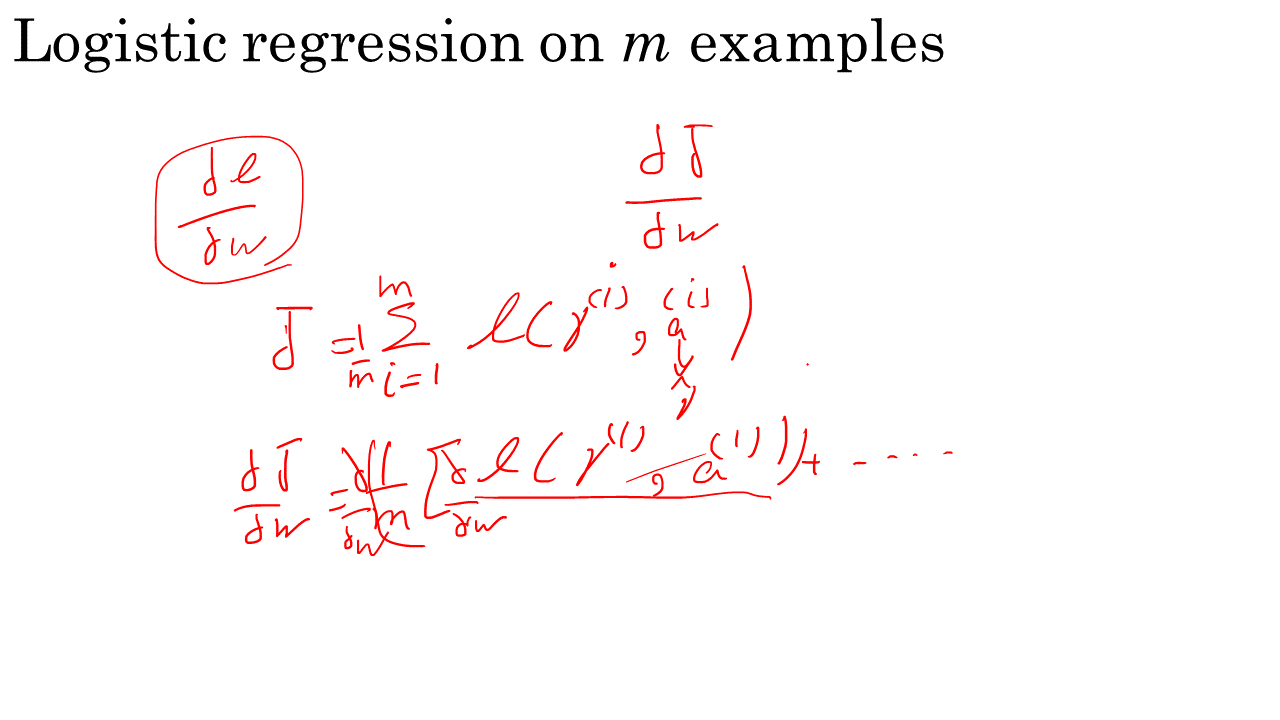 Logistic regression on m examples
dl/dw
dJ/dw
J = 1/m Σ_{i=1}^{m} l(y^(i), a^(i))
ŷ
dJ/dw = 1/m [d/dw l(y^(1), a^(1))) + - - - - -